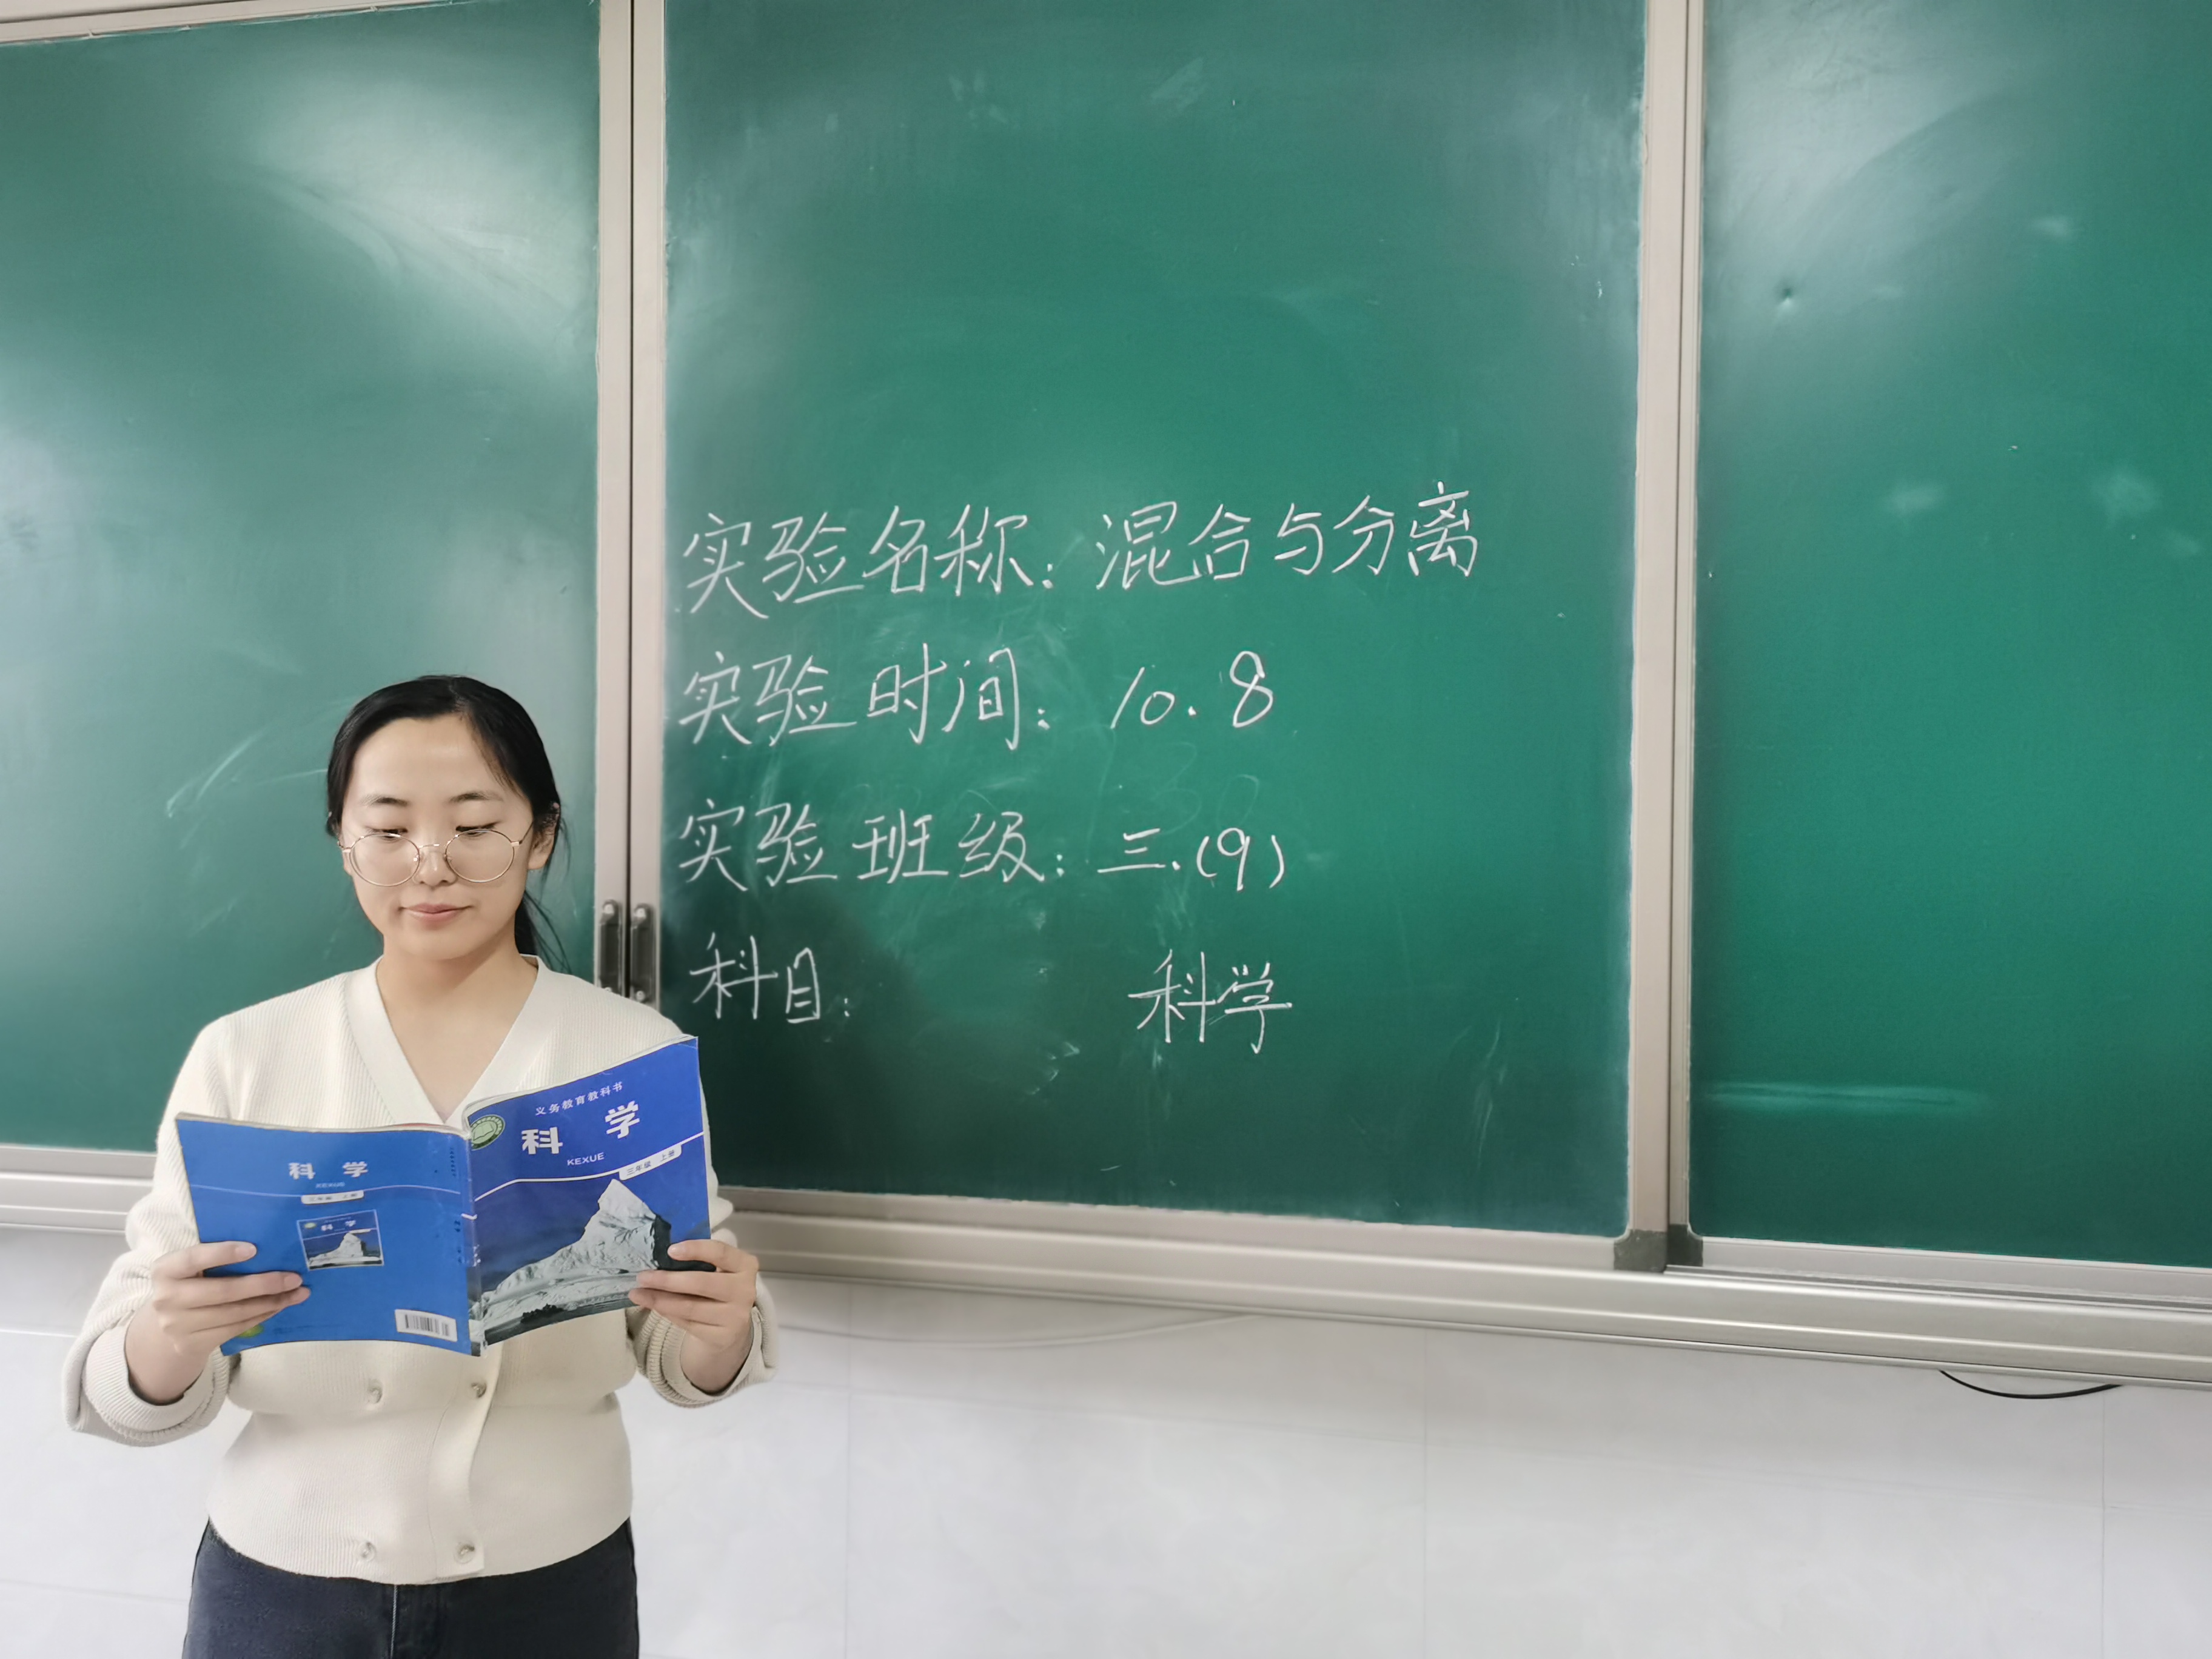 实验名称：混合与分离
实验时间：10.8
实验班级：三.(9)
科目： 科学
义务教育教科书
科学
KEXUE
三年级 上册
科学
KEXUE
三年级 上册
科学